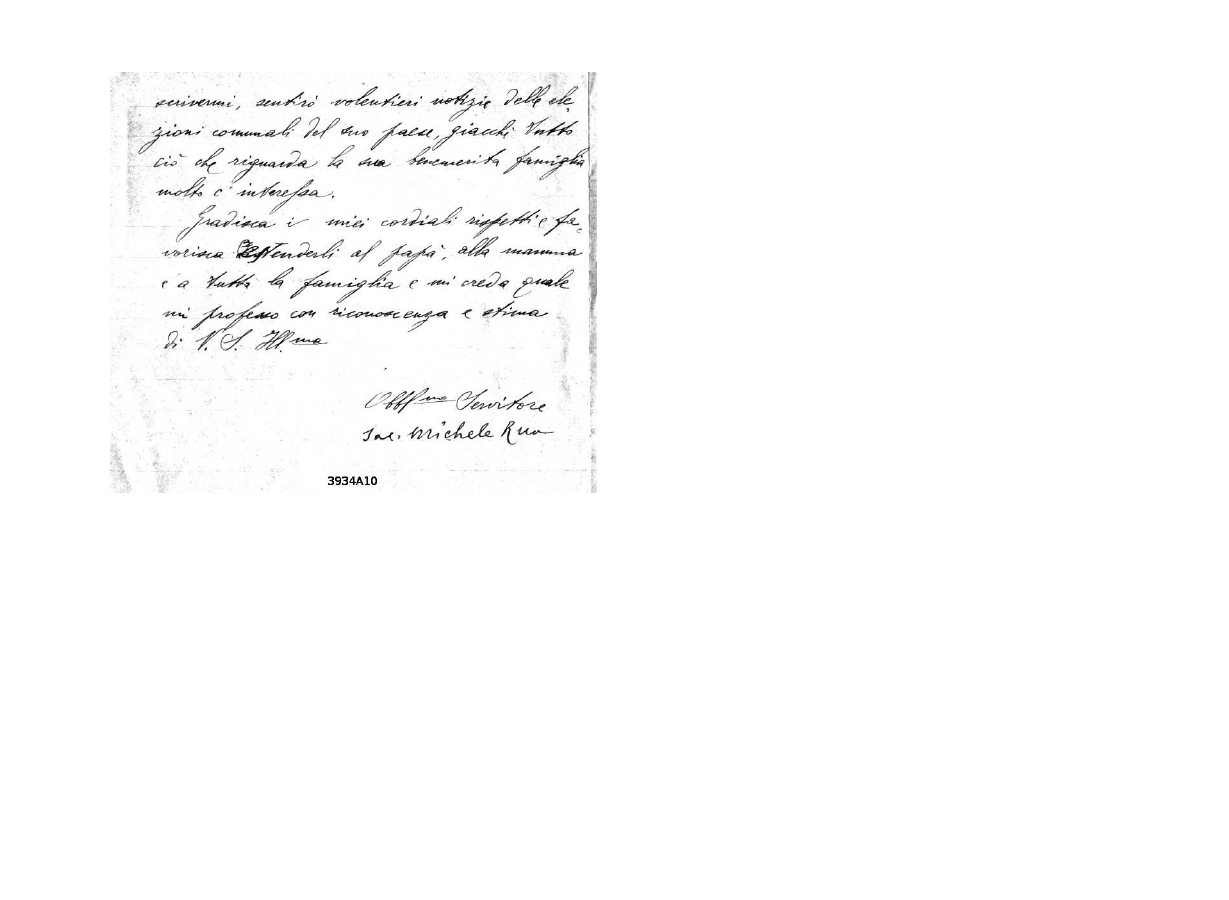 scrivermi, sentirò volentieri notizie delle ele-
zioni comunali del suo paese, giacchè tutto
ciò che riguarda la sua benemerita famiglia
molto c'interessa.
Gradisca i miei cordiali rispetti e fa-
vorisca estenderli al papà, alla mamma
e a tutta la famiglia e mi creda quale
mi professo con riconoscenza e stima
di V. S. Ill.ma
Obbl.mo Servitore
Sac. Michele Rua
3934A10